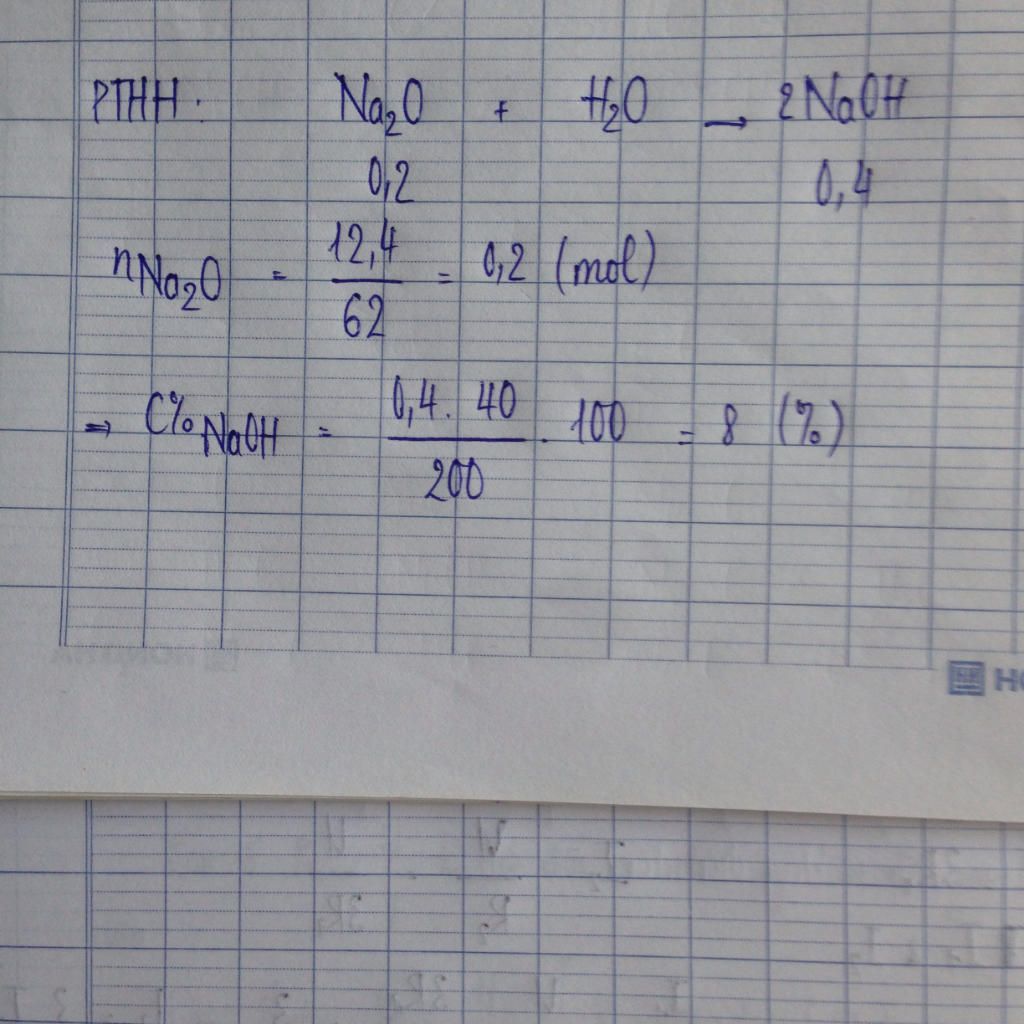 PTHH: Na₂O + H₂O → 2NaOH
0,2 0,4
nNa₂O = 12,4/62 = 0,2 (mol)
⇒ C% NaOH = 0,4. 40/200 . 100 = 8 (%)
HO